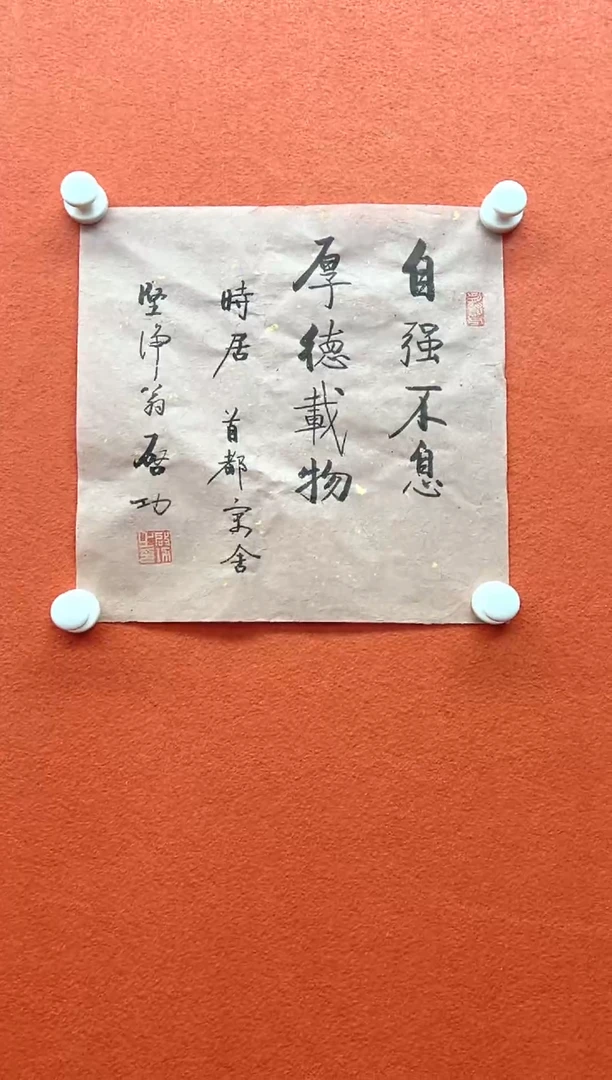 自强不息
厚德載物
時居首都寓舍
堅净翁啓功